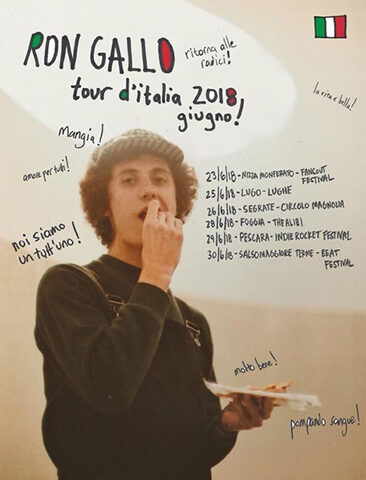 RON GALLO
ritorna alle
radici!
tour d'italia 2018
giugno!
la vita e bella!
Mangia!
amore per tutti!
noi siamo
un tutt'uno!
23/6/18 - NIZZA MONFERATO - FANGOUT
FESTIVAL
25/6/18 - LUGO - LUGHE
26/6/18 - SEGRATE - CIRCOLO MAGNOLIA
28/6/18 - FOGGIA - THE ALIBI
29/6/18 - PESCARA - INDIE ROCKET FESTIVAL
30/6/18 - SALSOMAGGIORE TERME - BEAT
FESTIVAL
molto bene!
pompando sangue!